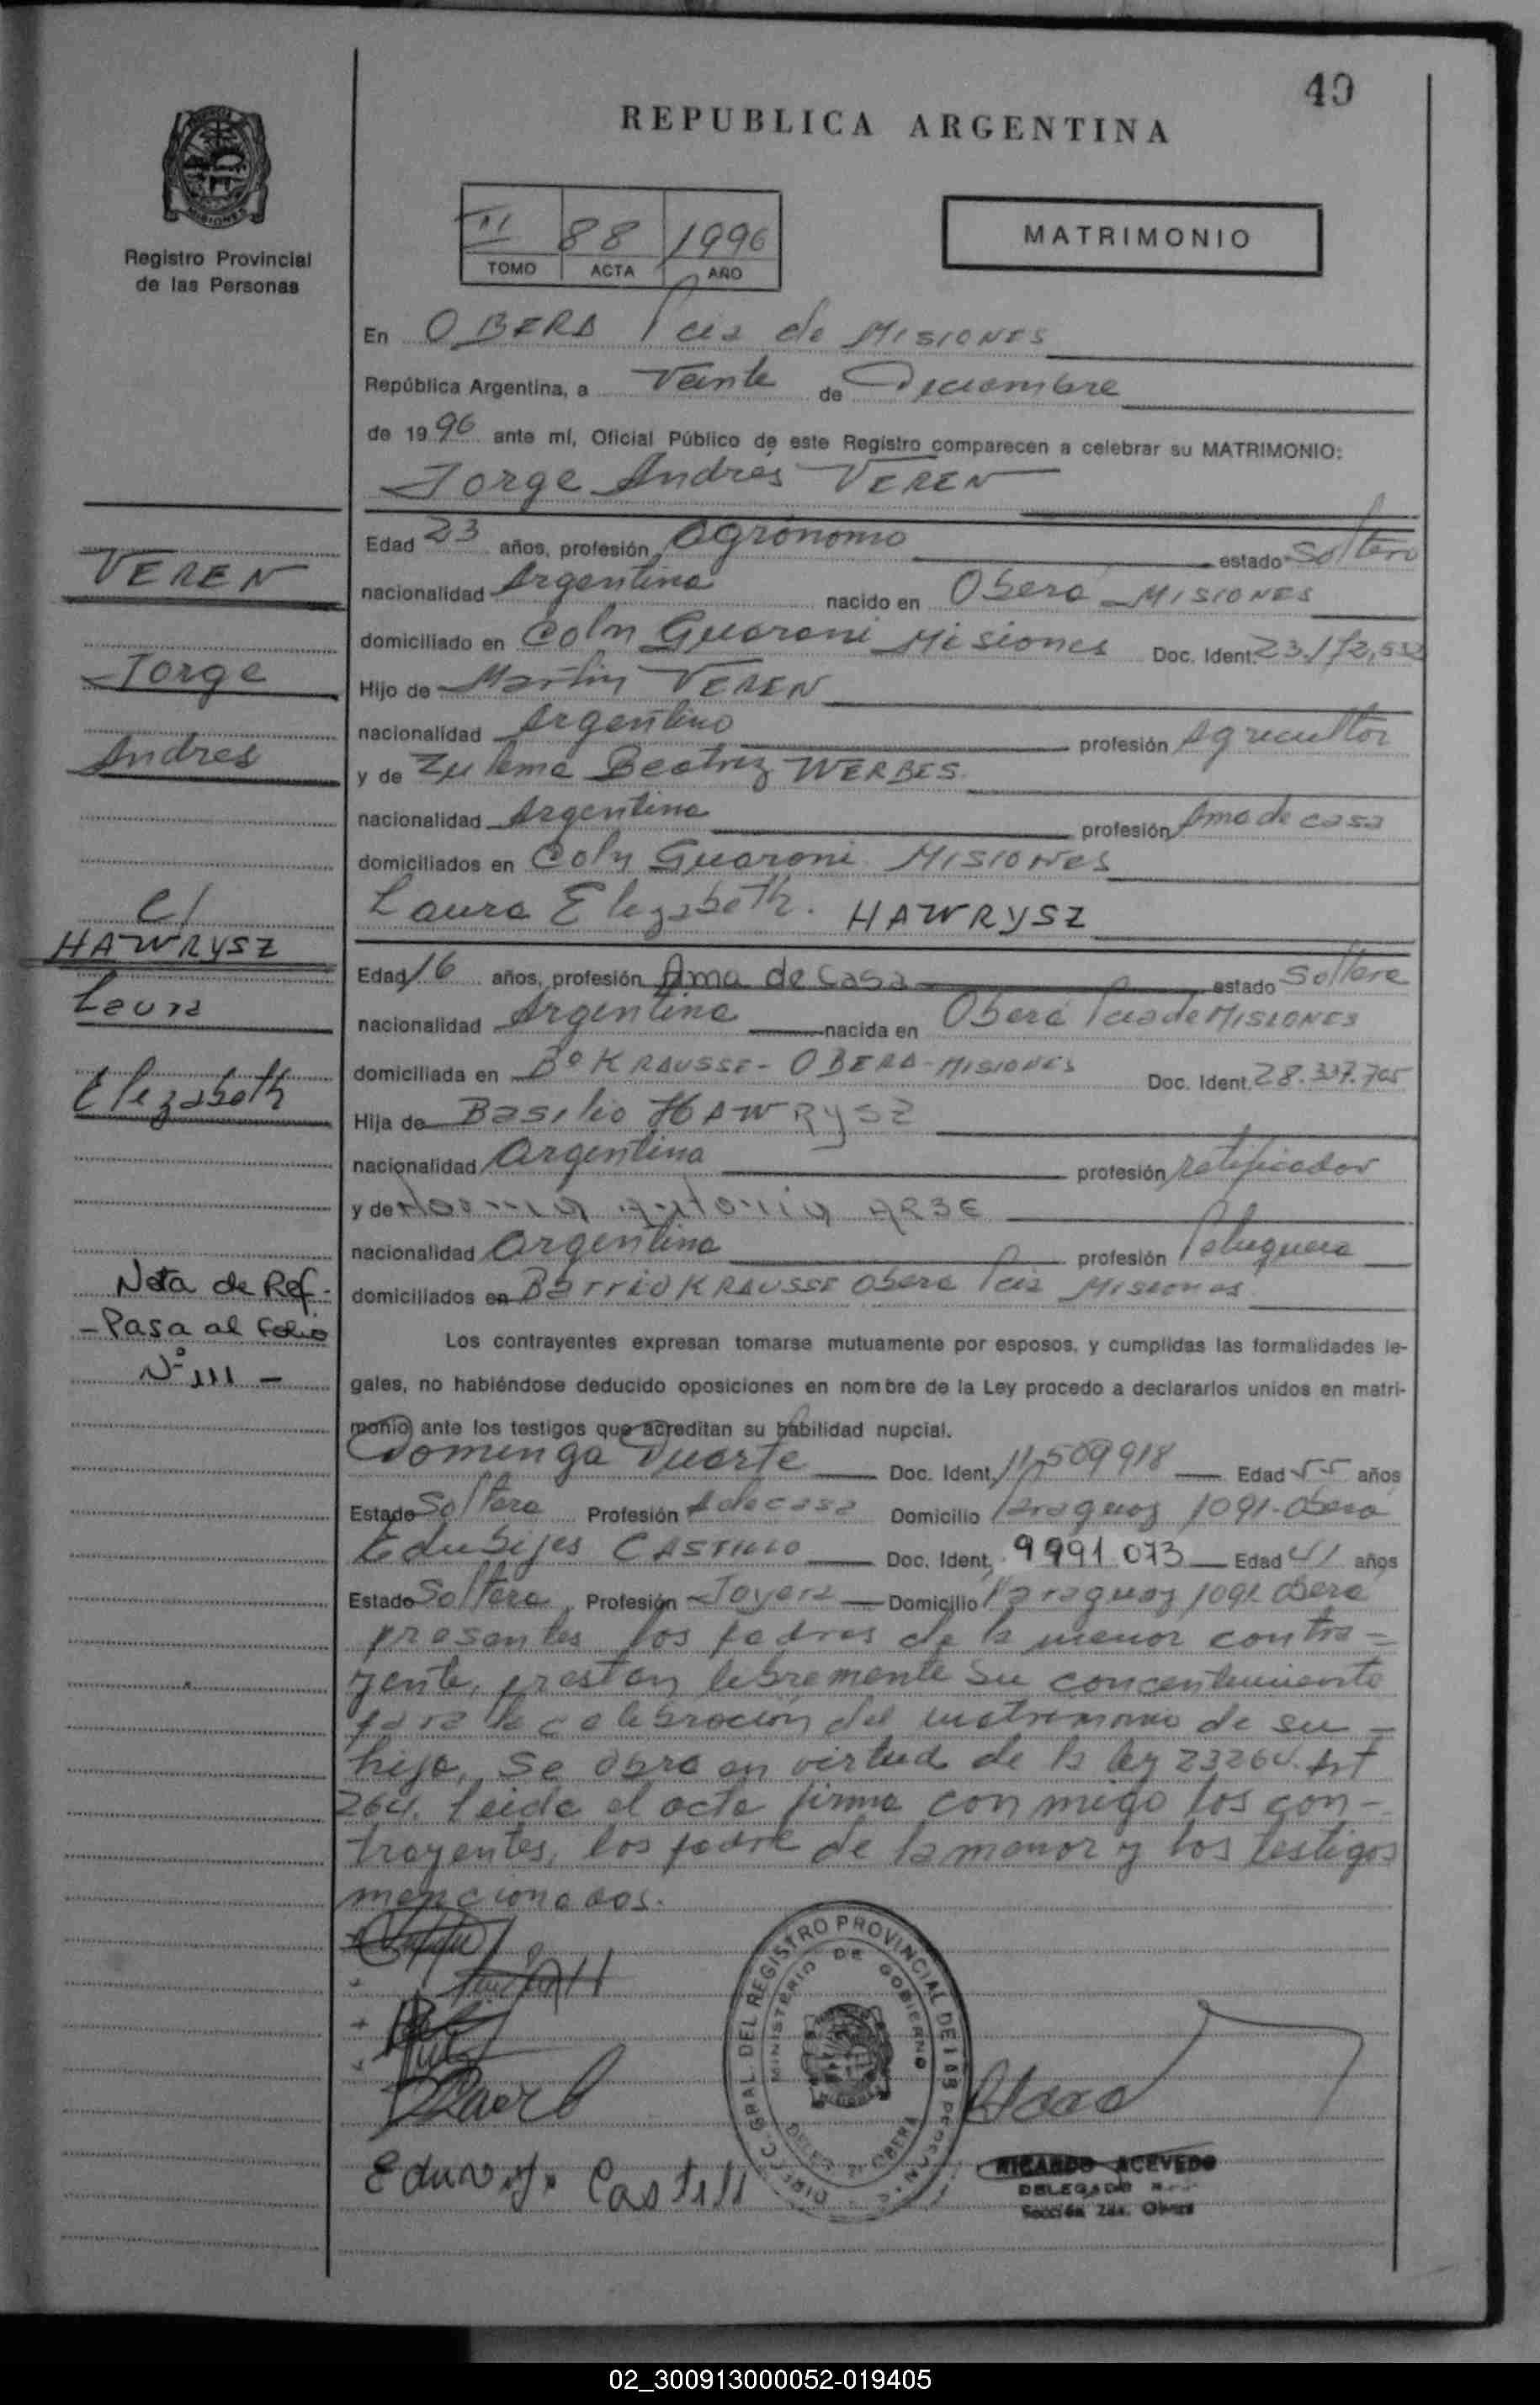 40
REPUBLICA ARGENTINA
Registro Provincial
de las Personas
II 88 1996
TOMO ACTA AÑO
MATRIMONIO
En OBERA Pcia de MISIONES
República Argentina, a Veinte de Diciembre
de 1996 ante mí, Oficial Público de este Registro comparecen a celebrar su MATRIMONIO:
Jorge Andrés VEREN
Edad 23 años, profesión Agrónomo estado Soltero
nacionalidad Argentina nacido en Oberá - MISIONES
domiciliado en Coln Guarani Misiones Doc. Ident. 23.172,532
Hijo de Martin VEREN
nacionalidad Argentino profesión Agricultor
y de Zulema Beatriz WERBES
nacionalidad Argentina profesión Ama de casa
domiciliados en Coln Guarani MISIONES
Laura Elizabeth. HAWRYSZ
Edad 16 años, profesión Ama de casa estado Soltera
nacionalidad Argentina nacida en Oberá Pcia de MISIONES
domiciliada en Bº KRAUSSE - OBERA - MISIONES Doc. Ident. 28.337.705
Hija de Basilio HAWRYSZ
nacionalidad Argentina profesión retificador
y de Norma Antonia ARBE
nacionalidad Argentina profesión Peluquera
domiciliados en Barrio KRAUSSE Obera Pcia Misiones
VEREN
Jorge
Andres
c/
HAWRYSZ
Laura
Elizabeth
Nota de Ref.-
-Pasa al folio
Nº 111 -
Los contrayentes expresan tomarse mutuamente por esposos, y cumplidas las formalidades le-
gales, no habiéndose deducido oposiciones en nombre de la Ley procedo a declararlos unidos en matri-
monio ante los testigos que acreditan su habilidad nupcial.
Dominga Duarte Doc. Ident. 11,509918 Edad 55 años
Estado Soltera Profesión A de casa Domicilio Paraguay 1091-Obera
Edubijes CASTILLO Doc. Ident, 9991 073 Edad 41 años
Estado Soltera Profesión Joyera Domicilio Paraguay 1091 Obera
presentes los padres de la menor contra-
yente, prestan libremente su concentimiento
para la celebración del matrimonio de su
hija, Se obra en virtud de la ley 23264. Art
264. leida el acta firma con migo los con-
trayentes, los padre de la menor y los testigos
mencionados.
DIRECC. GRAL. DEL REGISTRO PROVINCIAL DE LAS PERSONAS
MINISTERIO DE GOBIERNO
RICARDO ACEVEDO
DELEGADO
Sección 2da. Oberá
02_300913000052-019405